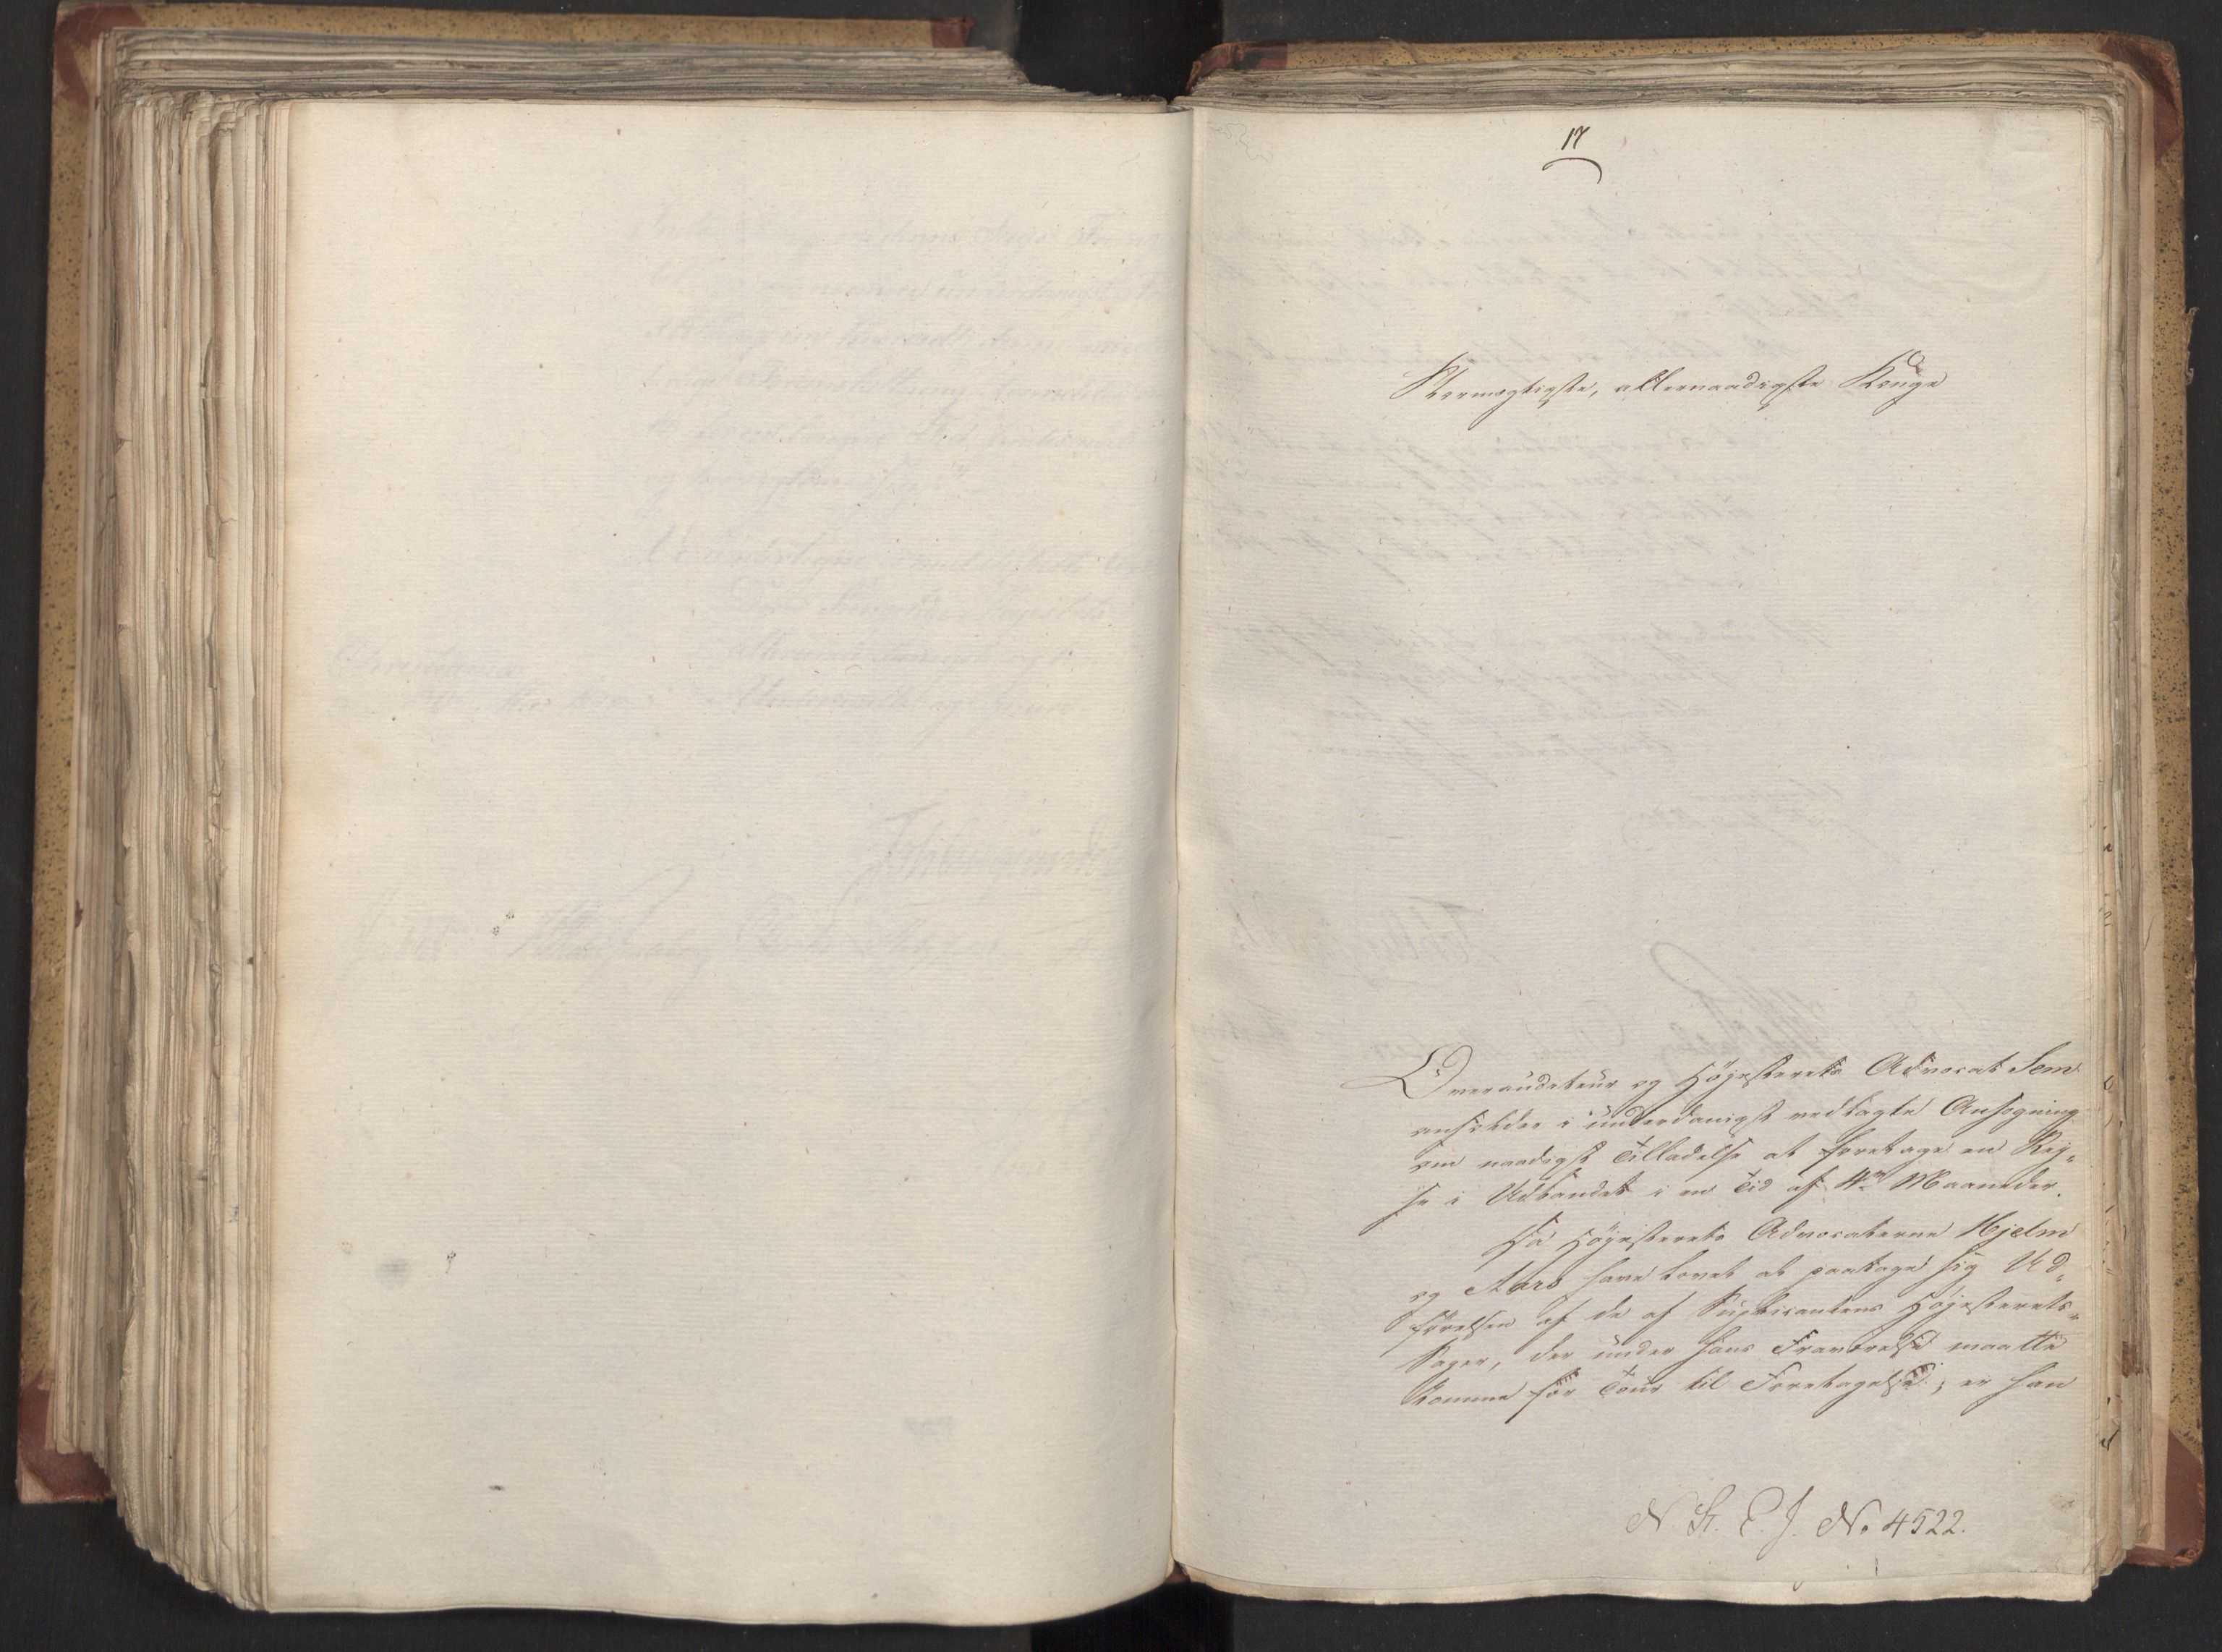 17
Stormægtigste, allernaadigste Konge
Overauditeur og Höjesterets Advocat Sem
ansöker i underdanigst vedlagte Ansögning
om naadigst Tilladelse at foretage en Rej„
se i Udlandet i en Tid af 4re Maaneder.
Da Höjesterets Advocaterne Hjelm
og Aars have lovet at paatage sig Ud„
förelsen af de af Suplicantens Höjesterets„
Sager, der under hans Fraværelse maatte
komme for Tour til Foretagelse; er han
N. St. E. J. No 4522.